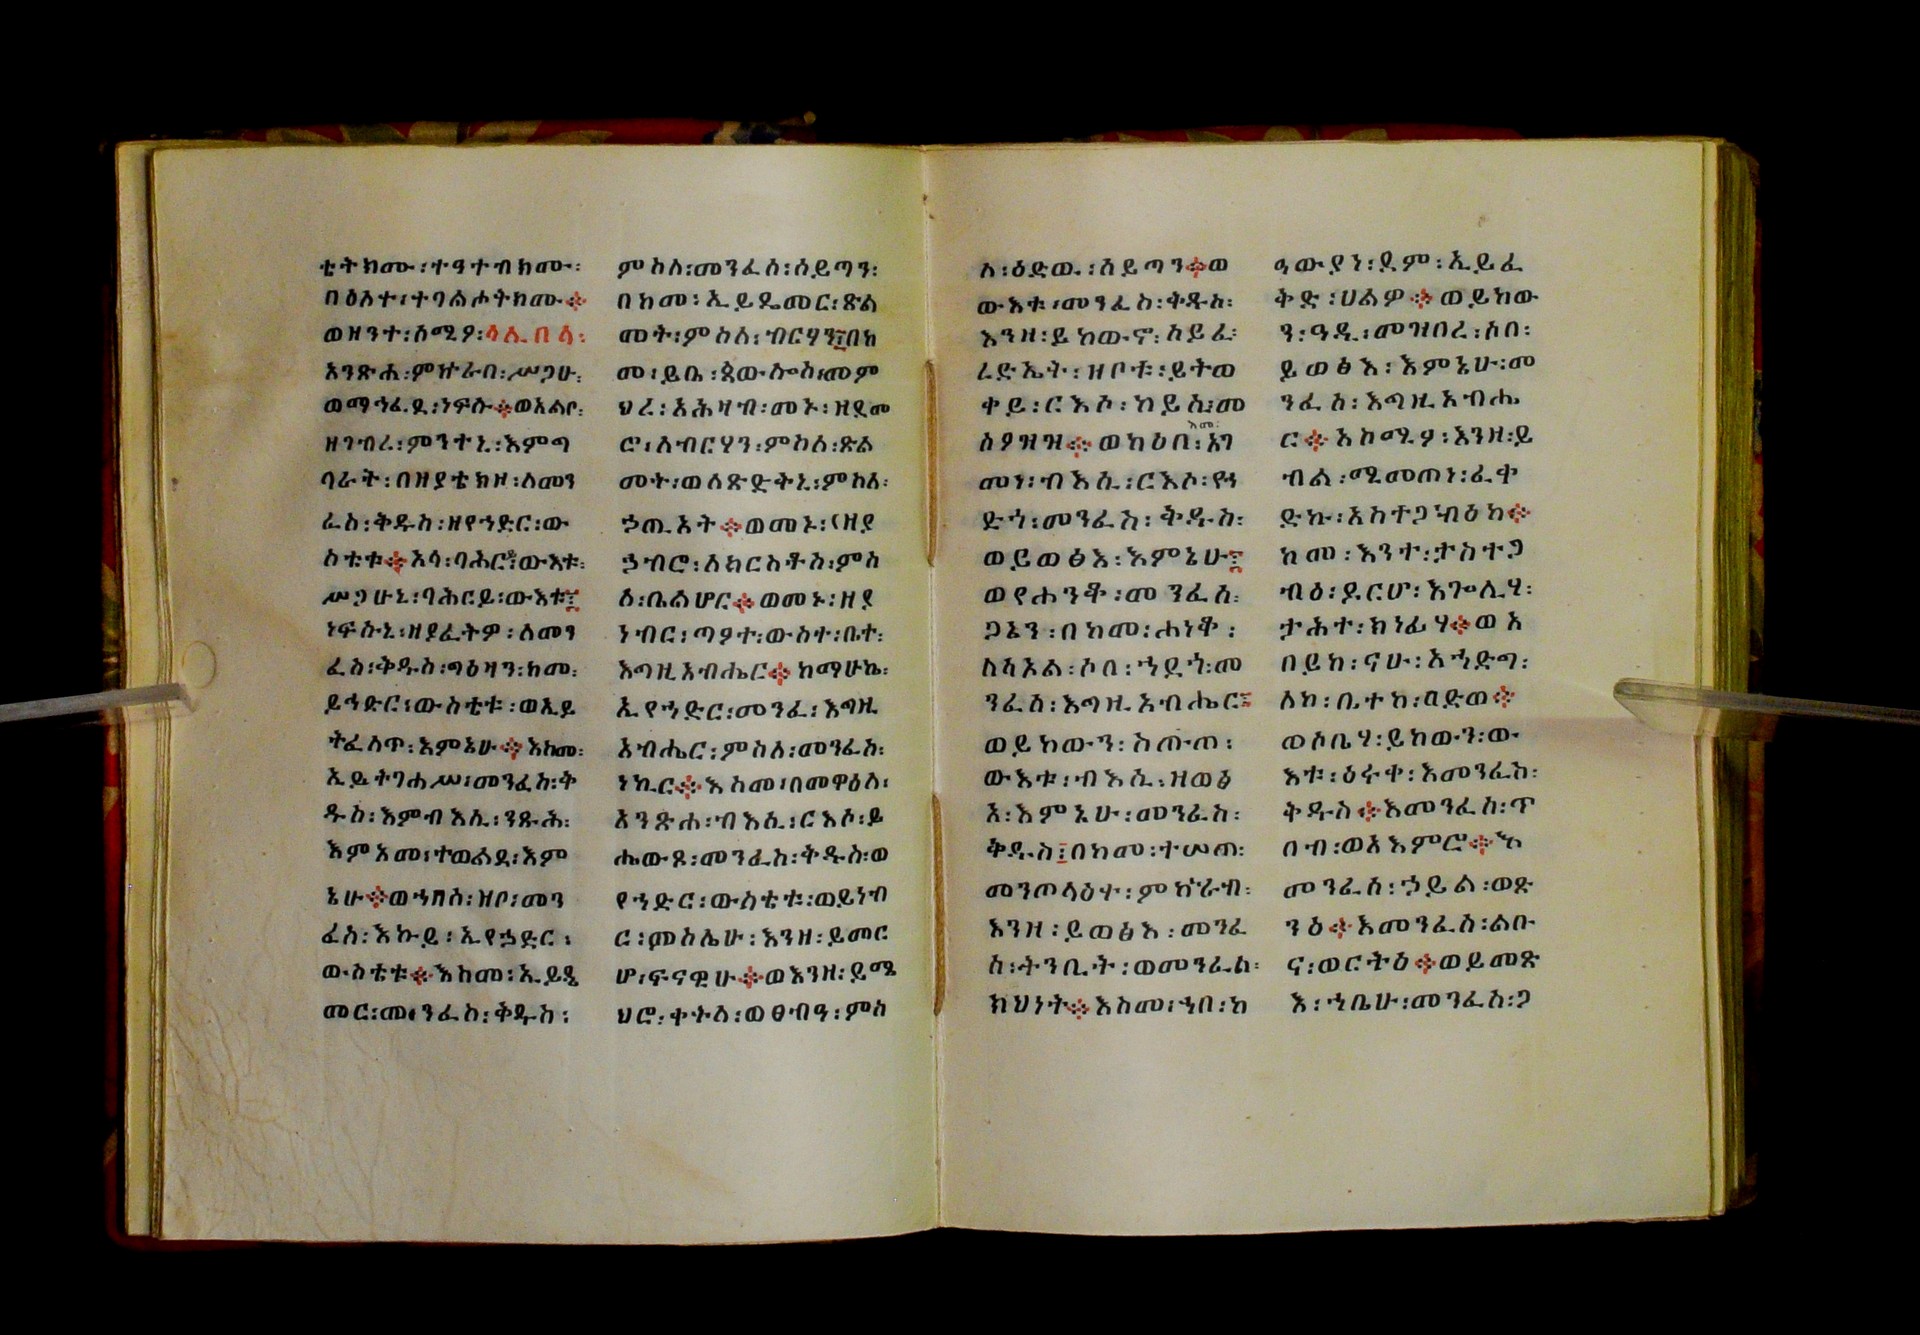 ቲትክሙ፡ተዓተብክሙ፡
በዕለተ፡ተባልሖትክሙ።
ወዘንተ፡ሰሚዖ፡ላሊበላ፡
አንጽሐ፡ምኵራበ፡ሥጋሁ፡
ወማኅፈደ፡ነፍሱ።ወአልቦ፡
ዘገብረ፡ምንተኒ፡እምጣ
ባራት፡በዘያቴክዞ፡ለመን
ፈስ፡ቅዱስ፡ዘየኀድር፡ው
ስቴቱ።አላ፡ባሕርይ፡ውእቱ፡
ሥጋሁኒ፡ባሕርይ፡ውእቱ፤
ነፍሱኒ፡ዘያፈትዎ፡ለመን
ፈስ፡ቅዱስ፡ግዕዛን፡ከመ፡
ይኅድር፡ውስቴቱ፡ወኢይ
ትፈለጥ፡እምኔሁ።እስመ፡
ኢይትገሐሥ፡መንፈስ፡ቅ
ዱስ፡እምብእሲ፡ንጹሕ፡
እምአመ፡ተወልደ፡እም
ኔሁ።ወኀበስ፡ዝቦ፡መን
ፈስ፡እኩይ፡ኢየኃድር፡
ውስቴቱ።እስመ፡ኢይዴ
መር፡መንፈስ፡ቅዱስ፡
ምስለ፡መንፈሰ፡ሰይጣን፡
በከመ፡ኢይዴመር፡ጽል
መት፡ምስለ፡ብርሃን፤በከ
መ፡ይቤ፡ጳውሎስ፡መም
ህረ፡አሕዛብ፡መኑ፡ዘደመ
ሮ፡ለብርሃን፡ምስለ፡ጽል
መት፡ወለጽድቅኒ፡ምስለ፡
ኃጢአት።ወመኑ፡ዘያ
ኃብሮ፡ለክርስቶስ፡ምስ
ለ፡ቤልሆር።ወመኑ፡ዘያ
ነብር፡ጣዖተ፡ውስተ፡ቤተ፡
እግዚአብሔር።ከማሁኬ፡
ኢየኀድር፡መንፈ፡እግዚ
አብሔር፡ምስለ፡መንፈስ፡
ነኪር።እስመ፡በመዋዕለ፡
አንጽሐ፡ብእሲ፡ርእሶ፡ይ
ሔውጾ፡መንፈስ፡ቅዱስ፡ወ
የኀድር፡ውስቴቱ፡ወይነብ
ር፡ምስሌሁ፡እንዘ፡ይመር
ሆ፡ፍናዊሁ።ወእንዘ፡ይሜ
ህሮ፡ቀትለ፡ወፀብዓ፡ምስ
ለ፡ዕድወ፡ሰይጣን።ወ
ውእቱ፡መንፈስ፡ቅዱስ፡
እንዘ፡ይከውኖ፡ሰይፈ፡
ረድኤት፡ዘቦቱ፡ይትወ
ቀይ፡ርእሶ፡ከይሲ፡መ
ስዖዝዝ።ወከዕበ፡እመ፡አገ
መነ፡ብእሲ፡ርእሶ፡የኃ
ድጎ፡መንፈስ፡ቅዱስ፡
ወይወፅእ፡እምኔሁ፤
ወየሐንቆ፡መንፈሰ፡
ጋኔን፡በከመ፡ሐነቆ፡
ለሳኦል፡ሶበ፡ኀደጎ፡መ
ንፈሰ፡እግዚአብሔር፤
ወይከውን፡ስጡጠ፡
ውእቱ፡ብእሲ፡ዘወፅ
አ፡እምኔሁ፡መንፈስ፡
ቅዱስ፤በከመ፡ተሠጠ፡
መንጦላዕተ፡ምኵራብ፡
እንዘ፡ይወፅእ፡መንፈ
ሰ፡ትንቢት፡ወመንፈሰ፡
ክህነት።እስመ፡ኀበ፡ከ
ዓውያነ፡ደም፡ኢይፈ
ቅድ፡ሀልዎ።ወይከው
ን፡ዓዲ፡መዝበረ፡ሰበ፡
ይወፅእ፡እምኔሁ፡መ
ንፈሰ፡እግዚአብሔ
ር።አኮሚያ፡እንዘ፡ይ
ብል፡ሚመጠነ፡ፈቀ
ድኩ፡አስተጋብዕከ።
ከመ፡እንተ፡ታስተጋ
ብዕ፡ደርሆ፡እጐሊሃ፡
ታሕተ፡ክነፊሃ።ወአ
በይከ፡ናሁ፡አኀድግ፡
ለከ፡ቤተከ፡በድወ።
ወሶቤሃ፡ይከውን፡ው
እቱ፡ዕሩቀ፡እመንፈስ፡
ቅዱስ።እመንፈስ፡ጥ
በብ፡ወአእምሮ።እ
መንፈሰ፡ኃይል፡ወጽ
ንዕ።እመንፈስ፡ልቡ
ና፡ወርትዕ።ወይመጽ
እ፡ኀቤሁ፡መንፈስ፡ጋ